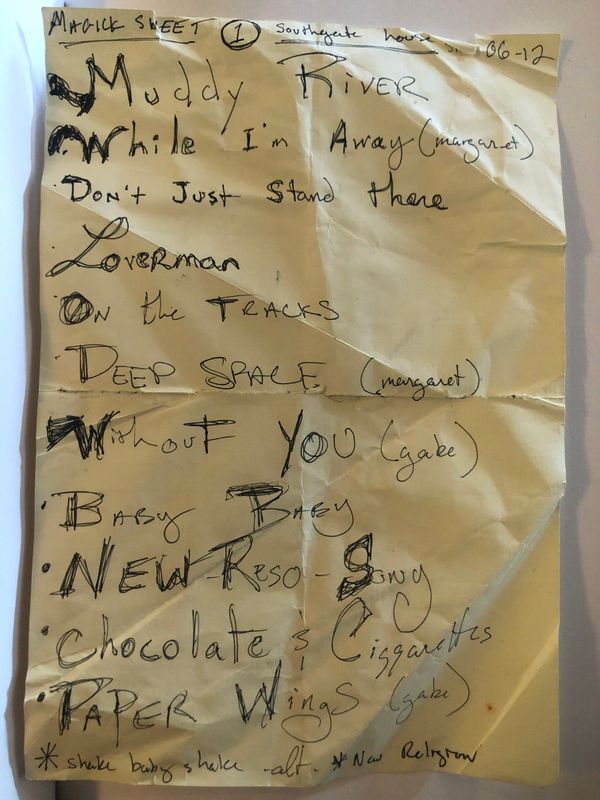 MAGICK SHEET ① Southgate house 06-12
Muddy River
While I'm Away (margaret)
Don't Just Stand there
Loverman
On the TRACKS
DEEP SPACE (margaret)
Without You (gabe)
Baby Baby
NEW-Reso-Song
Chocolate & Ciggarettes
PAPER Wings (gabe)
* shake baby shake -alt- * New Religion